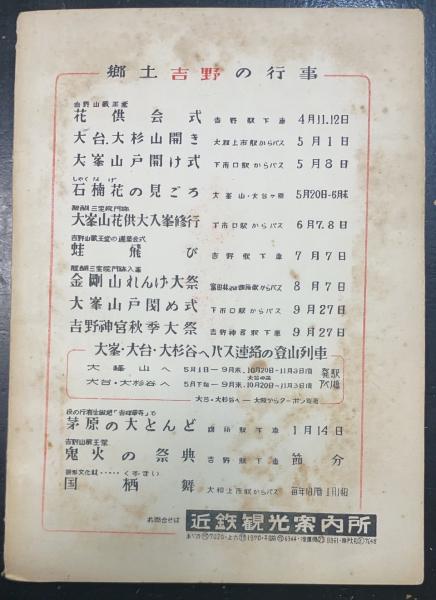 郷土吉野の行事
吉野山蔵王堂
花供会式 吉野駅下車 4月11.12日
大台.大杉山開き 大和上市駅からバス 5月1日
大峯山戸開け式 下市口駅からバス 5月8日
しゃくなげ
石楠花の見ごろ 大峯山・大台ヶ原 5月20日-6月末
醍醐三宝院門跡
大峯山花供大入峯修行 下市口駅からバス 6月7.8日
吉野山蔵王堂の蓮華会式
蛙飛び 吉野駅下車 7月7日
醍醐三宝院門跡入峯
金剛山れんげ大祭 富田林又は御所駅からバス 8月7日
大峯山戸閉め式 下市口駅からバス 9月27日
吉野神宮秋季大祭 吉野神宮駅下車 9月27日
大峯・大台・大杉谷へバス連絡の登山列車
大峰山へ 5月1日—9月末、10月20日-11月3日(間)
大台・大杉谷へ 5月下旬—9月末、10月20日-11月3日(間)
発駅
アベノ橋
大台・大杉谷へ—大阪からクーポン発売
役の行者生誕地「吉祥草寺」で
茅原の大とんど 御所駅下車 1月14日
吉野山蔵王堂
鬼火の祭典 吉野駅下車 節分
無形文化財……くずまい
国栖舞 大和上市駅からバス
お問合せは 近鉄観光案内所